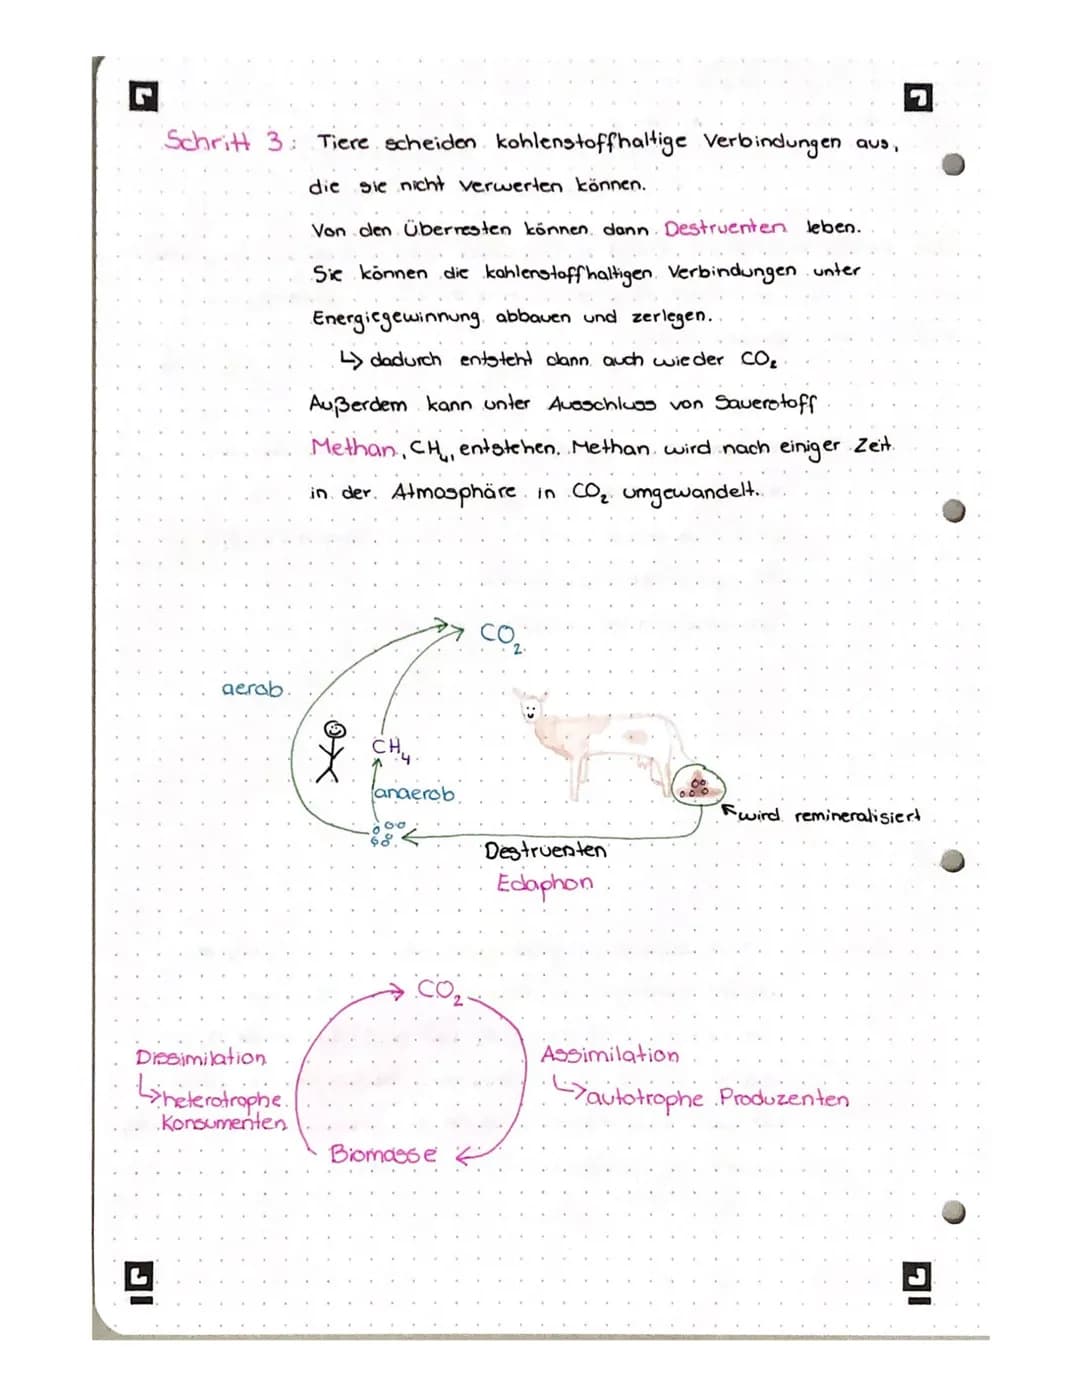 Schritt 3: Tiere scheiden kohlenstoffhaltige Verbindungen aus,
die sie nicht verwerten können.
Von den Überresten können dann Destruenten leben.
Sie können die kohlenstoffhaltigen Verbindungen unter
Energiegewinnung abbauen und zerlegen.
↳ dadurch entsteht dann auch wieder CO₂
Außerdem kann unter Ausschluss von Sauerstoff
Methan, CH₄, entstehen. Methan wird nach einiger Zeit
in der Atmosphäre in CO₂ umgewandelt.
CO₂
aerob
CH₄
anaerob
wird remineralisiert
Destruenten
Edaphon
CO₂
Dissimilation
↳ heterotrophe
Konsumenten
Assimilation
↳ autotrophe Produzenten
Biomasse